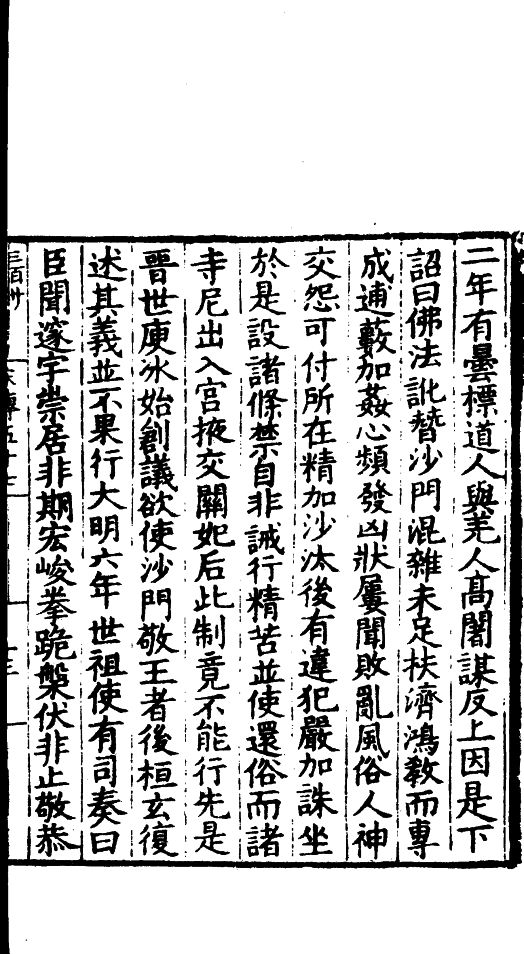 二年有曇標道人與羌人髙闍謀反上因是下
詔曰佛法訛替沙門混雜未足扶濟鴻敎而專
成逋藪加姦心頻發凶狀屢聞敗亂風俗人神
交怨可付所在精加沙汰後有違犯嚴加誅坐
於是設諸條禁自非誡行精苦並使還俗而諸
寺尼出入宫掖交關妃后此制竟不能行先是
晉世庾冰始創議欲使沙門敬王者後桓玄復
述其義並不果行大明六年世祖使有司奏曰
臣聞邃宇崇居非期宏峻拳跪槃伏非止敬恭
三百卅
傳五十七
十三